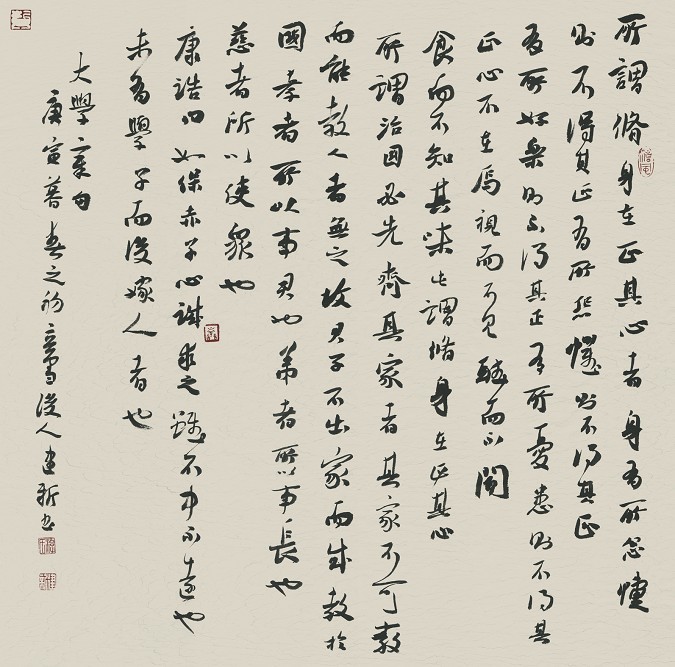 所謂脩身在正其心者身有所忿懥
則不得其正有所恐懼則不得其正
有所好樂則不得其正有所憂患則不得其
正心不在焉視而不見聽而不聞
食而不知其味此謂脩身在正其心
所謂治國必先齊其家者其家不可教
而能教人者無之故君子不出家而成教於
國孝者所以事君也弟者所以事長也
慈者所以使眾也
康誥曰如保赤子心誠求之雖不中不遠也
未有學子而後嫁人者也
大學章句
庚寅暮春之初後人建新書